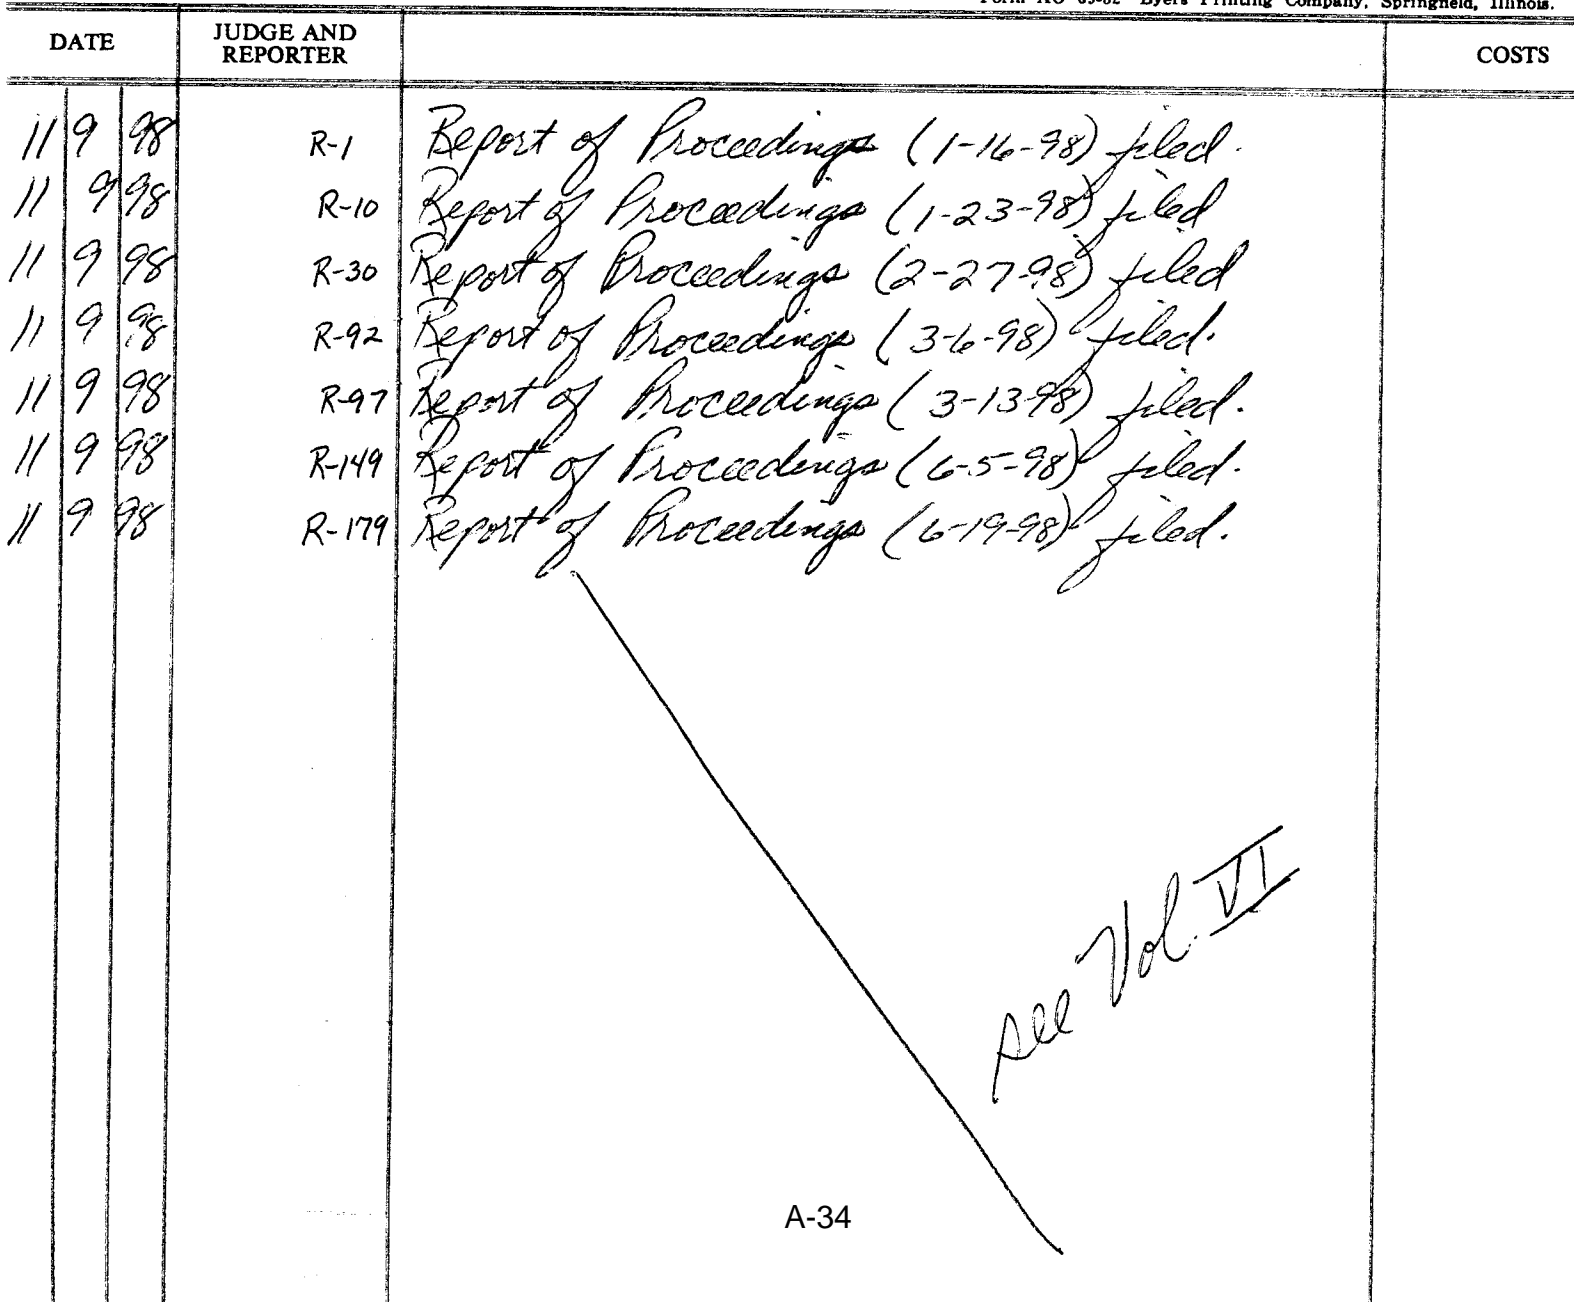 Form AO 65-82 Byers Printing Company, Springfield, Illinois.
DATE JUDGE AND REPORTER COSTS
11 9 98 R-1 Report of Proceedings (1-16-98) filed.
11 9 98 R-10 Report of Proceedings (1-23-98) filed
11 9 98 R-30 Report of Proceedings (2-27-98) filed
11 9 98 R-92 Report of Proceedings (3-6-98) filed.
11 9 98 R-97 Report of Proceedings (3-13-98) filed.
11 9 98 R-149 Report of Proceedings (6-5-98) filed.
11 9 98 R-179 Report of Proceedings (6-19-98) filed.
see Vol. VI
A-34